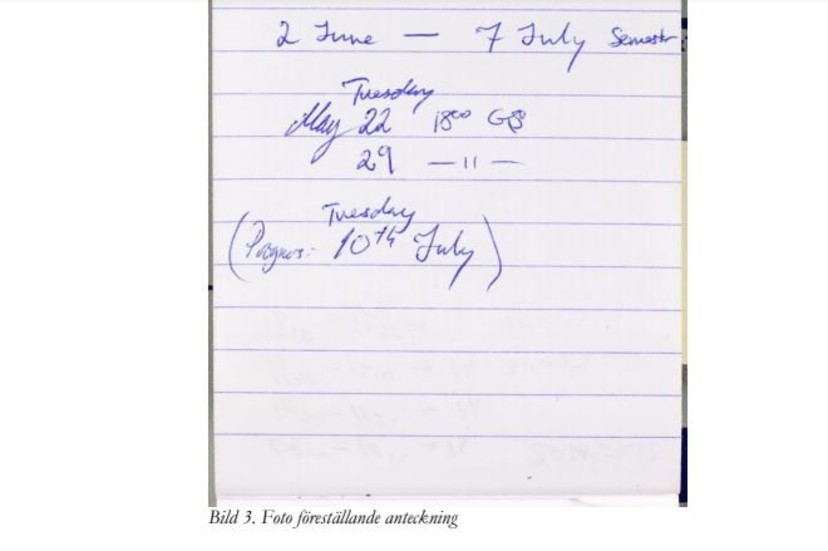 2 June — 7 July Semester
Tuesday
May 22 18⁰⁰ GB
29 — 11 —
Tuesday
(Prognos: 10th July)
Bild 3. Foto föreställande anteckning